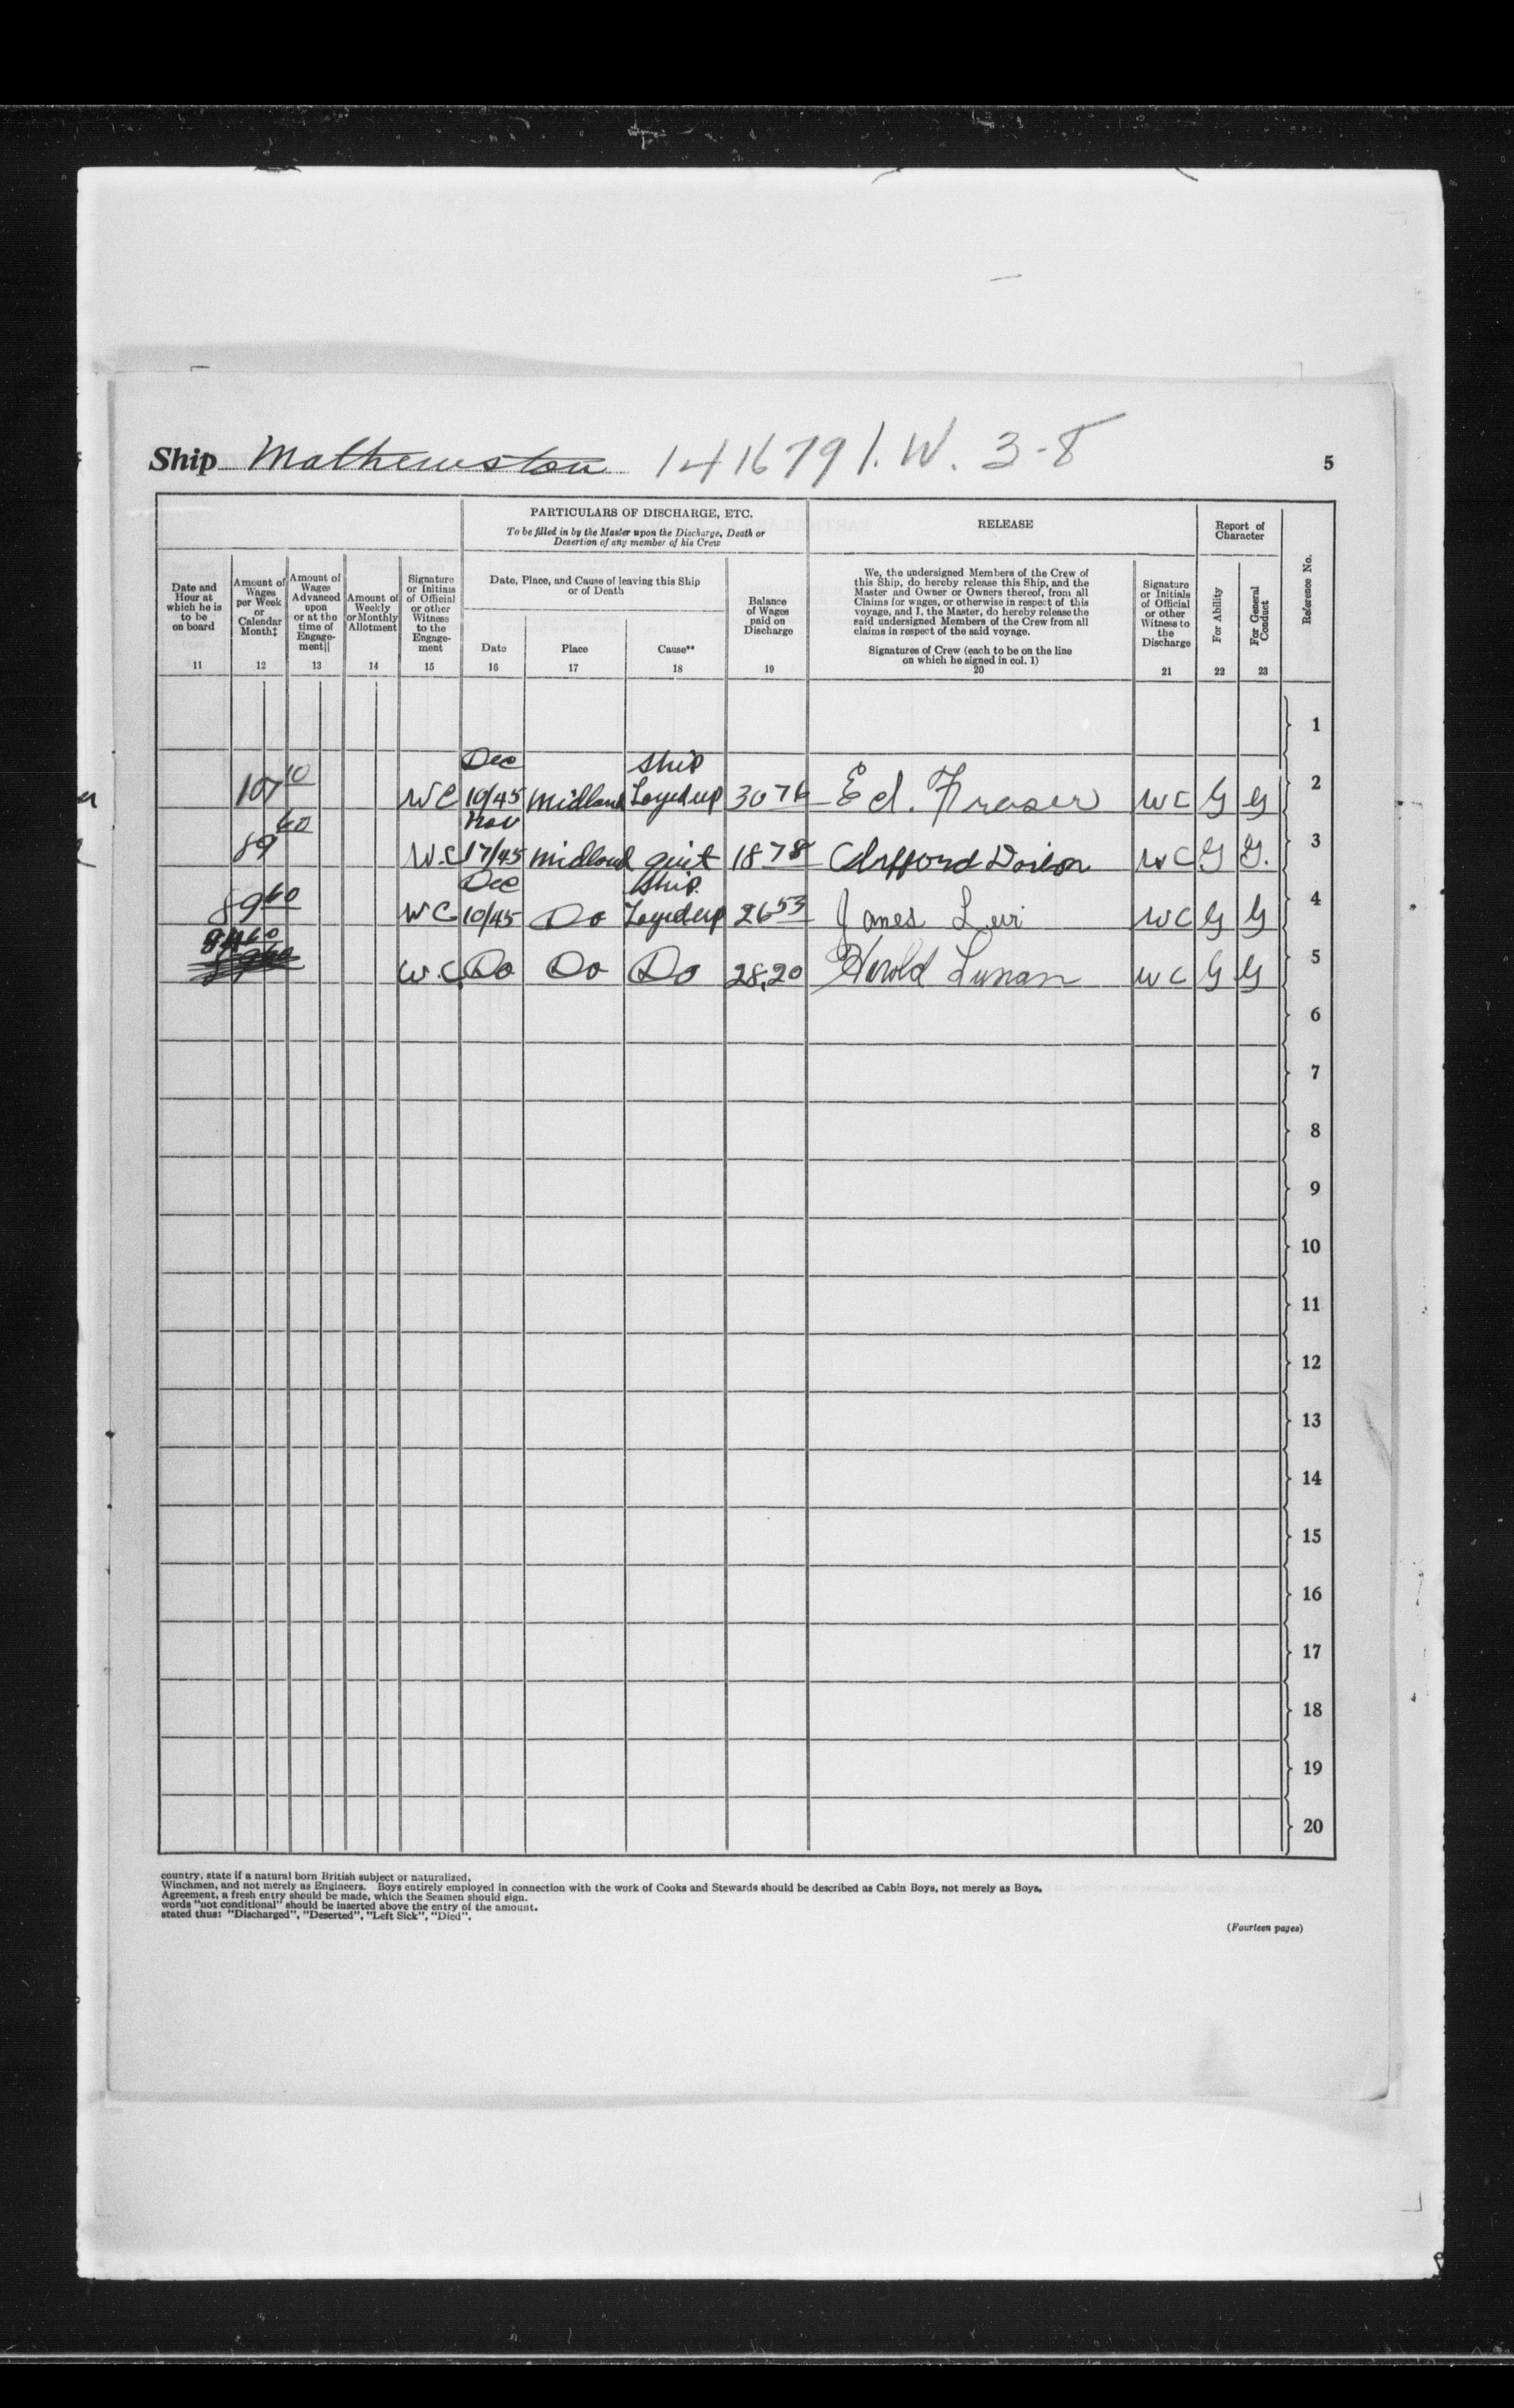 Ship Mathewston 141679 I. W. 3-8
5
PARTICULARS OF DISCHARGE, ETC.
To be filled in by the Master upon the Discharge, Death or
Desertion of any member of his Crew
RELEASE
Report of
Character
Reference No.
Date and
Hour at
which he is
to be
on board
11
Amount of
Wages
per Week
or
Calendar
Month‡
12
Amount of
Wages
Advanced
upon
or at the
time of
Engage-
ment||
13
Amount of
Weekly
or Monthly
Allotment
14
Signature
or Initials
of Official
or other
Witness
to the
Engage-
ment
15
Date, Place, and Cause of leaving this Ship
or of Death
Date
16
Place
17
Cause**
18
Balance
of Wages
paid on
Discharge
19
We, the undersigned Members of the Crew of
this Ship, do hereby release this Ship, and the
Master and Owner or Owners thereof, from all
Claims for wages, or otherwise in respect of this
voyage, and I, the Master, do hereby release the
said undersigned Members of the Crew from all
claims in respect of the said voyage.
Signatures of Crew (each to be on the line
on which he signed in col. 1)
20
Signature
or Initials
of Official
or other
Witness to
the
Discharge
21
For Ability
22
For General
Conduct
23
1
Dec ship
107 10 WC 10/45 Midland Layed up 30 76 Ed. Fraser WC G G 2
Nov
89 60 W.C 17/45 Midland quit 18 78 Clifford WC G G. 3
Dec Ship.
89 60 WC 10/45 Do Layed up 26 53 James Levi WC G G 4
60
W.C. Do Do Do 28.20 Harold Lunan WC G G 5
6
7
8
9
10
11
12
13
14
15
16
17
18
19
20
country, state if a natural born British subject or naturalized.
Winchmen, and not merely as Engineers. Boys entirely employed in connection with the work of Cooks and Stewards should be described as Cabin Boys, not merely as Boys.
Agreement, a fresh entry should be made, which the Seamen should sign.
words "not conditional" should be inserted above the entry of the amount.
stated thus: "Discharged", "Deserted", "Left Sick", "Died".
(Fourteen pages)